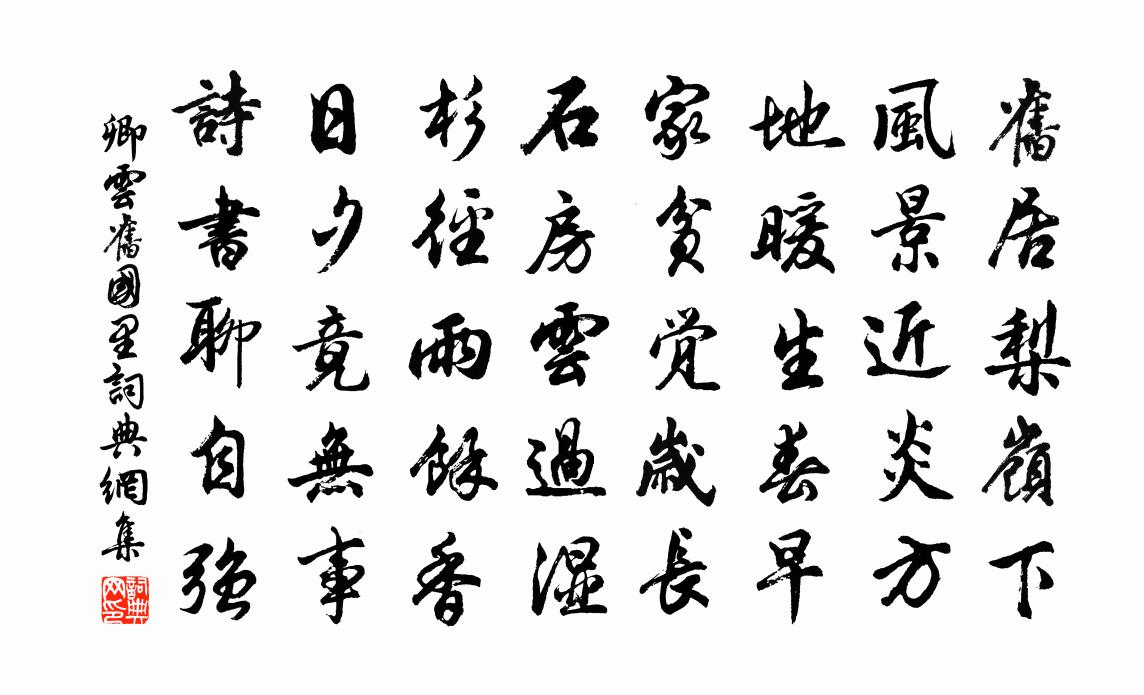 舊居梨嶺下
風景近炎方
地暖生春早
家貧覚歳長
石房雲過濕
杉徑雨餘香
日夕竟無事
詩書聊自强
卿雲舊國里詞典網集
詞典網印